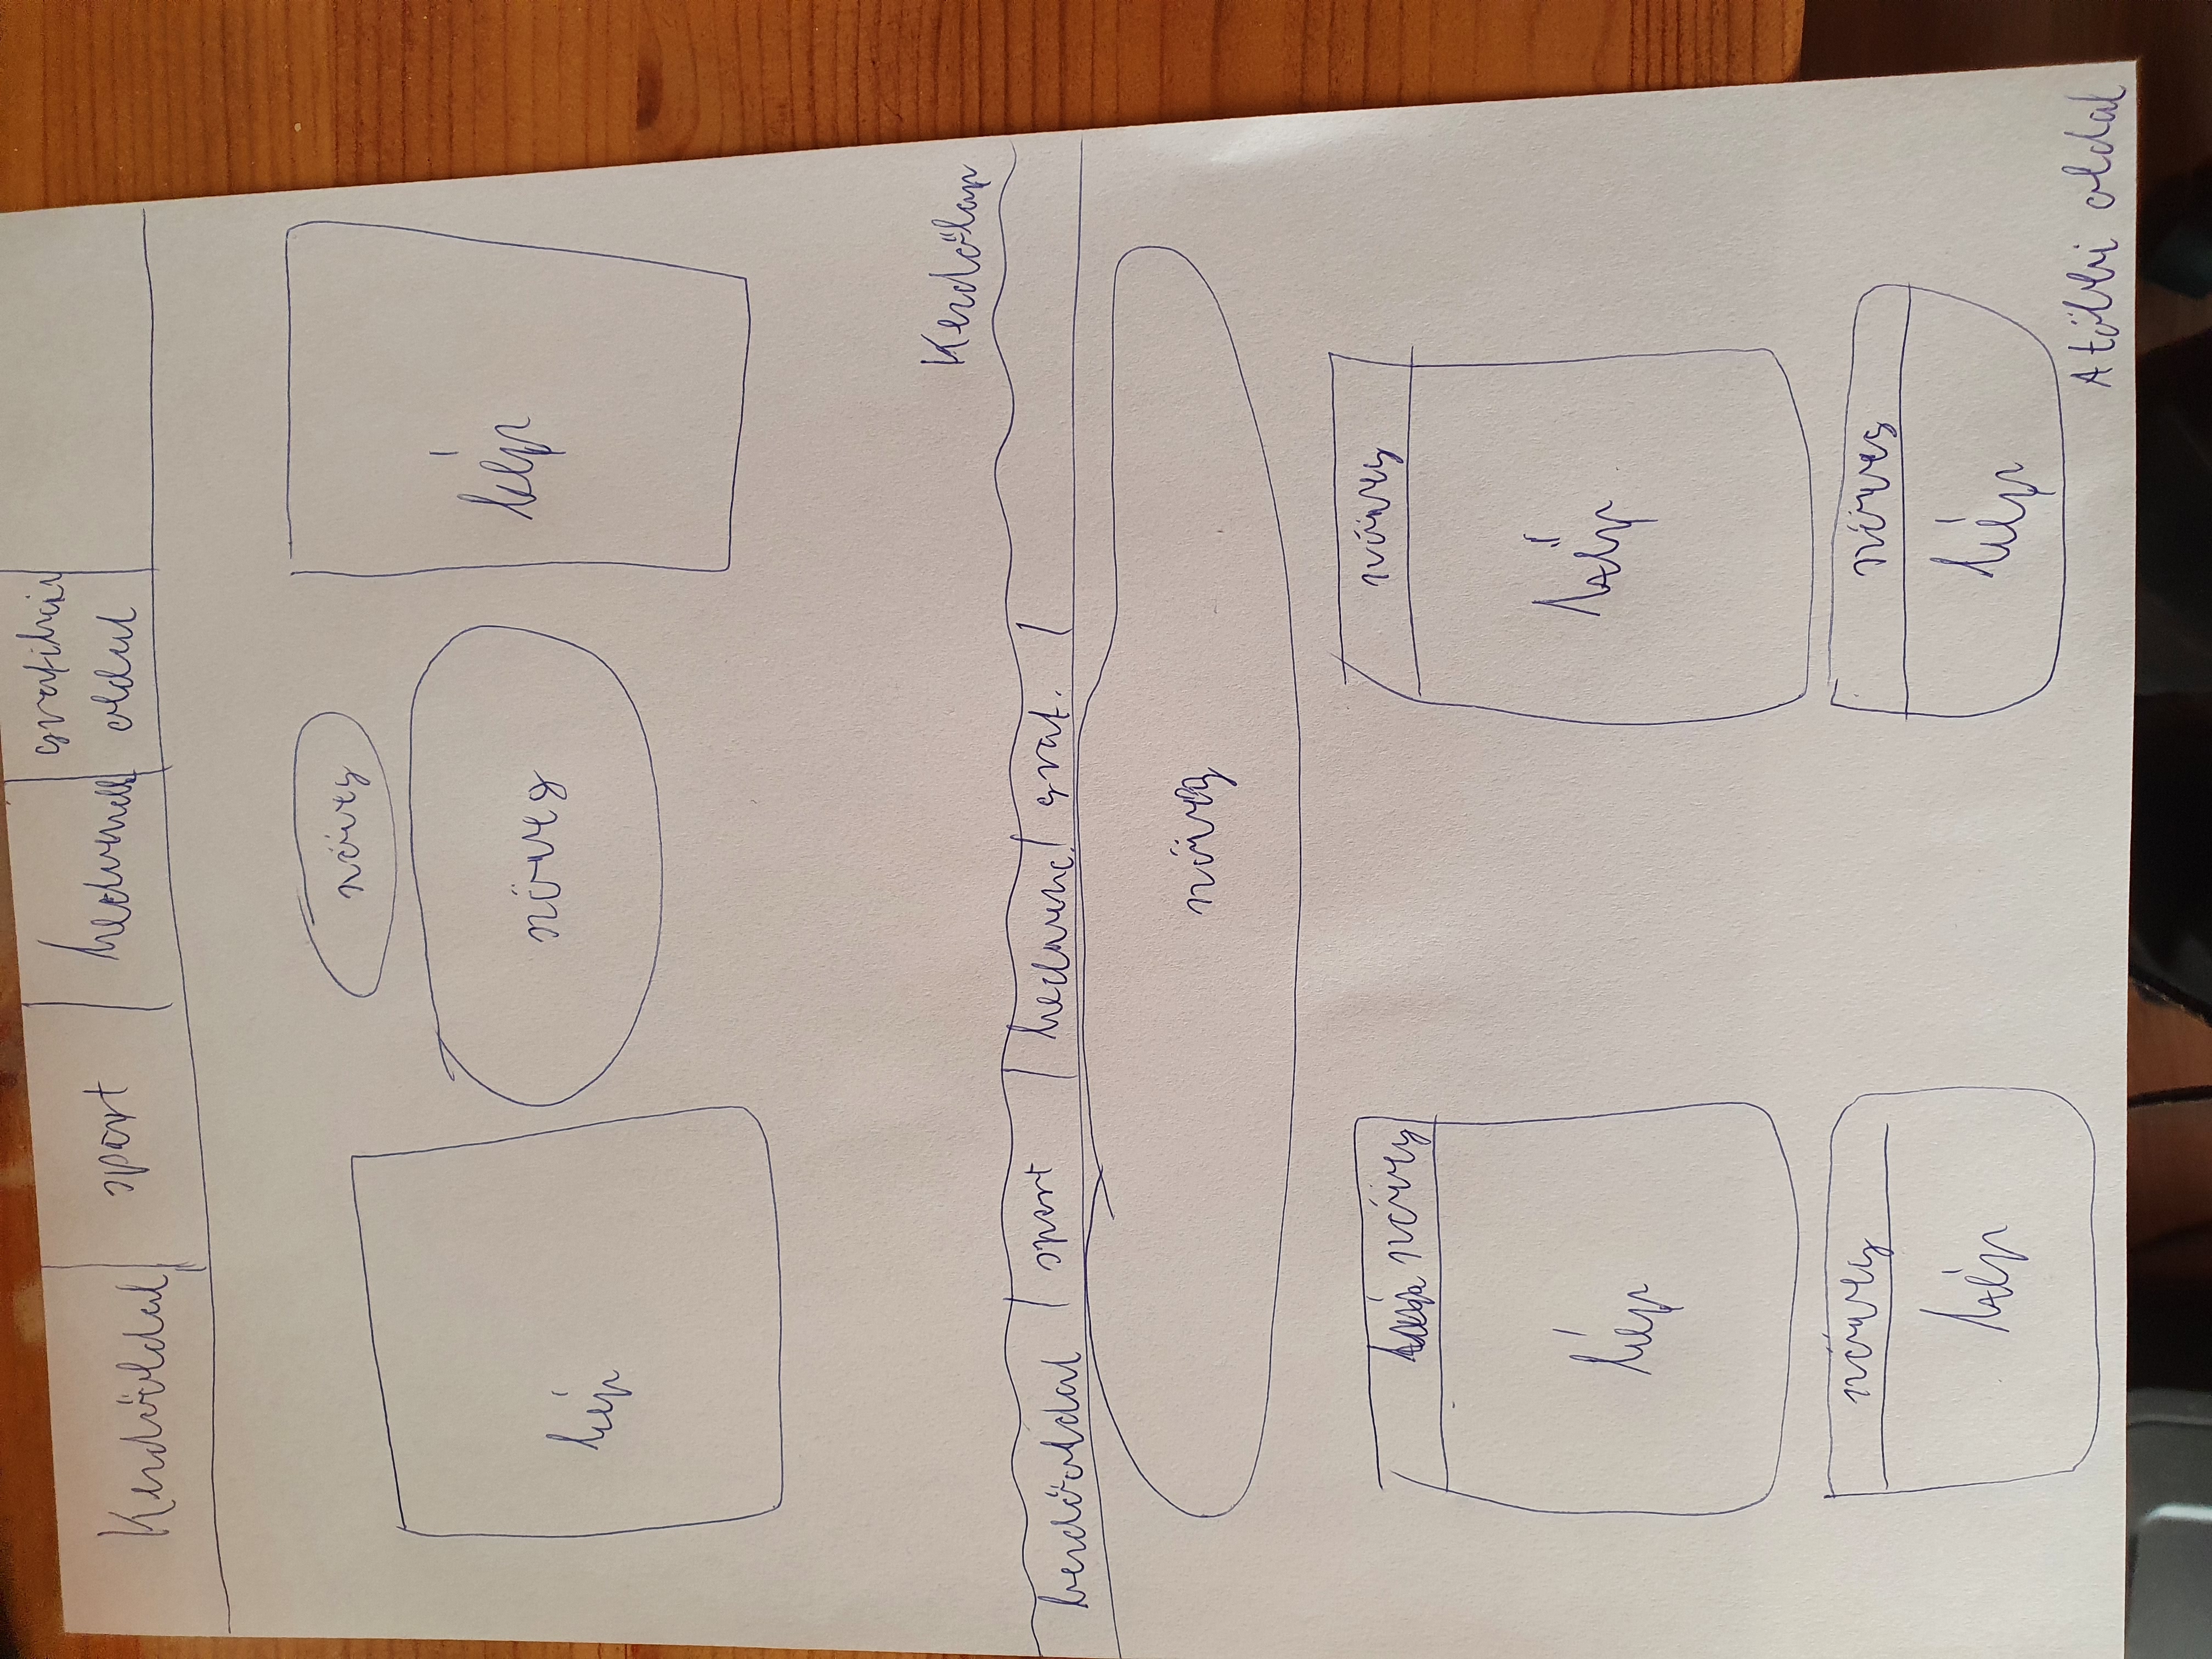 Kezdőoldal sport kedvenc grafikai
oldal
szöveg
szöveg
kép
kép
Kezdőlap
kezdőoldal sport kedvenc. graf.
szöveg
szöveg
szöveg
kép
kép
szöveg
szöveg
kép
kép
A többi oldal